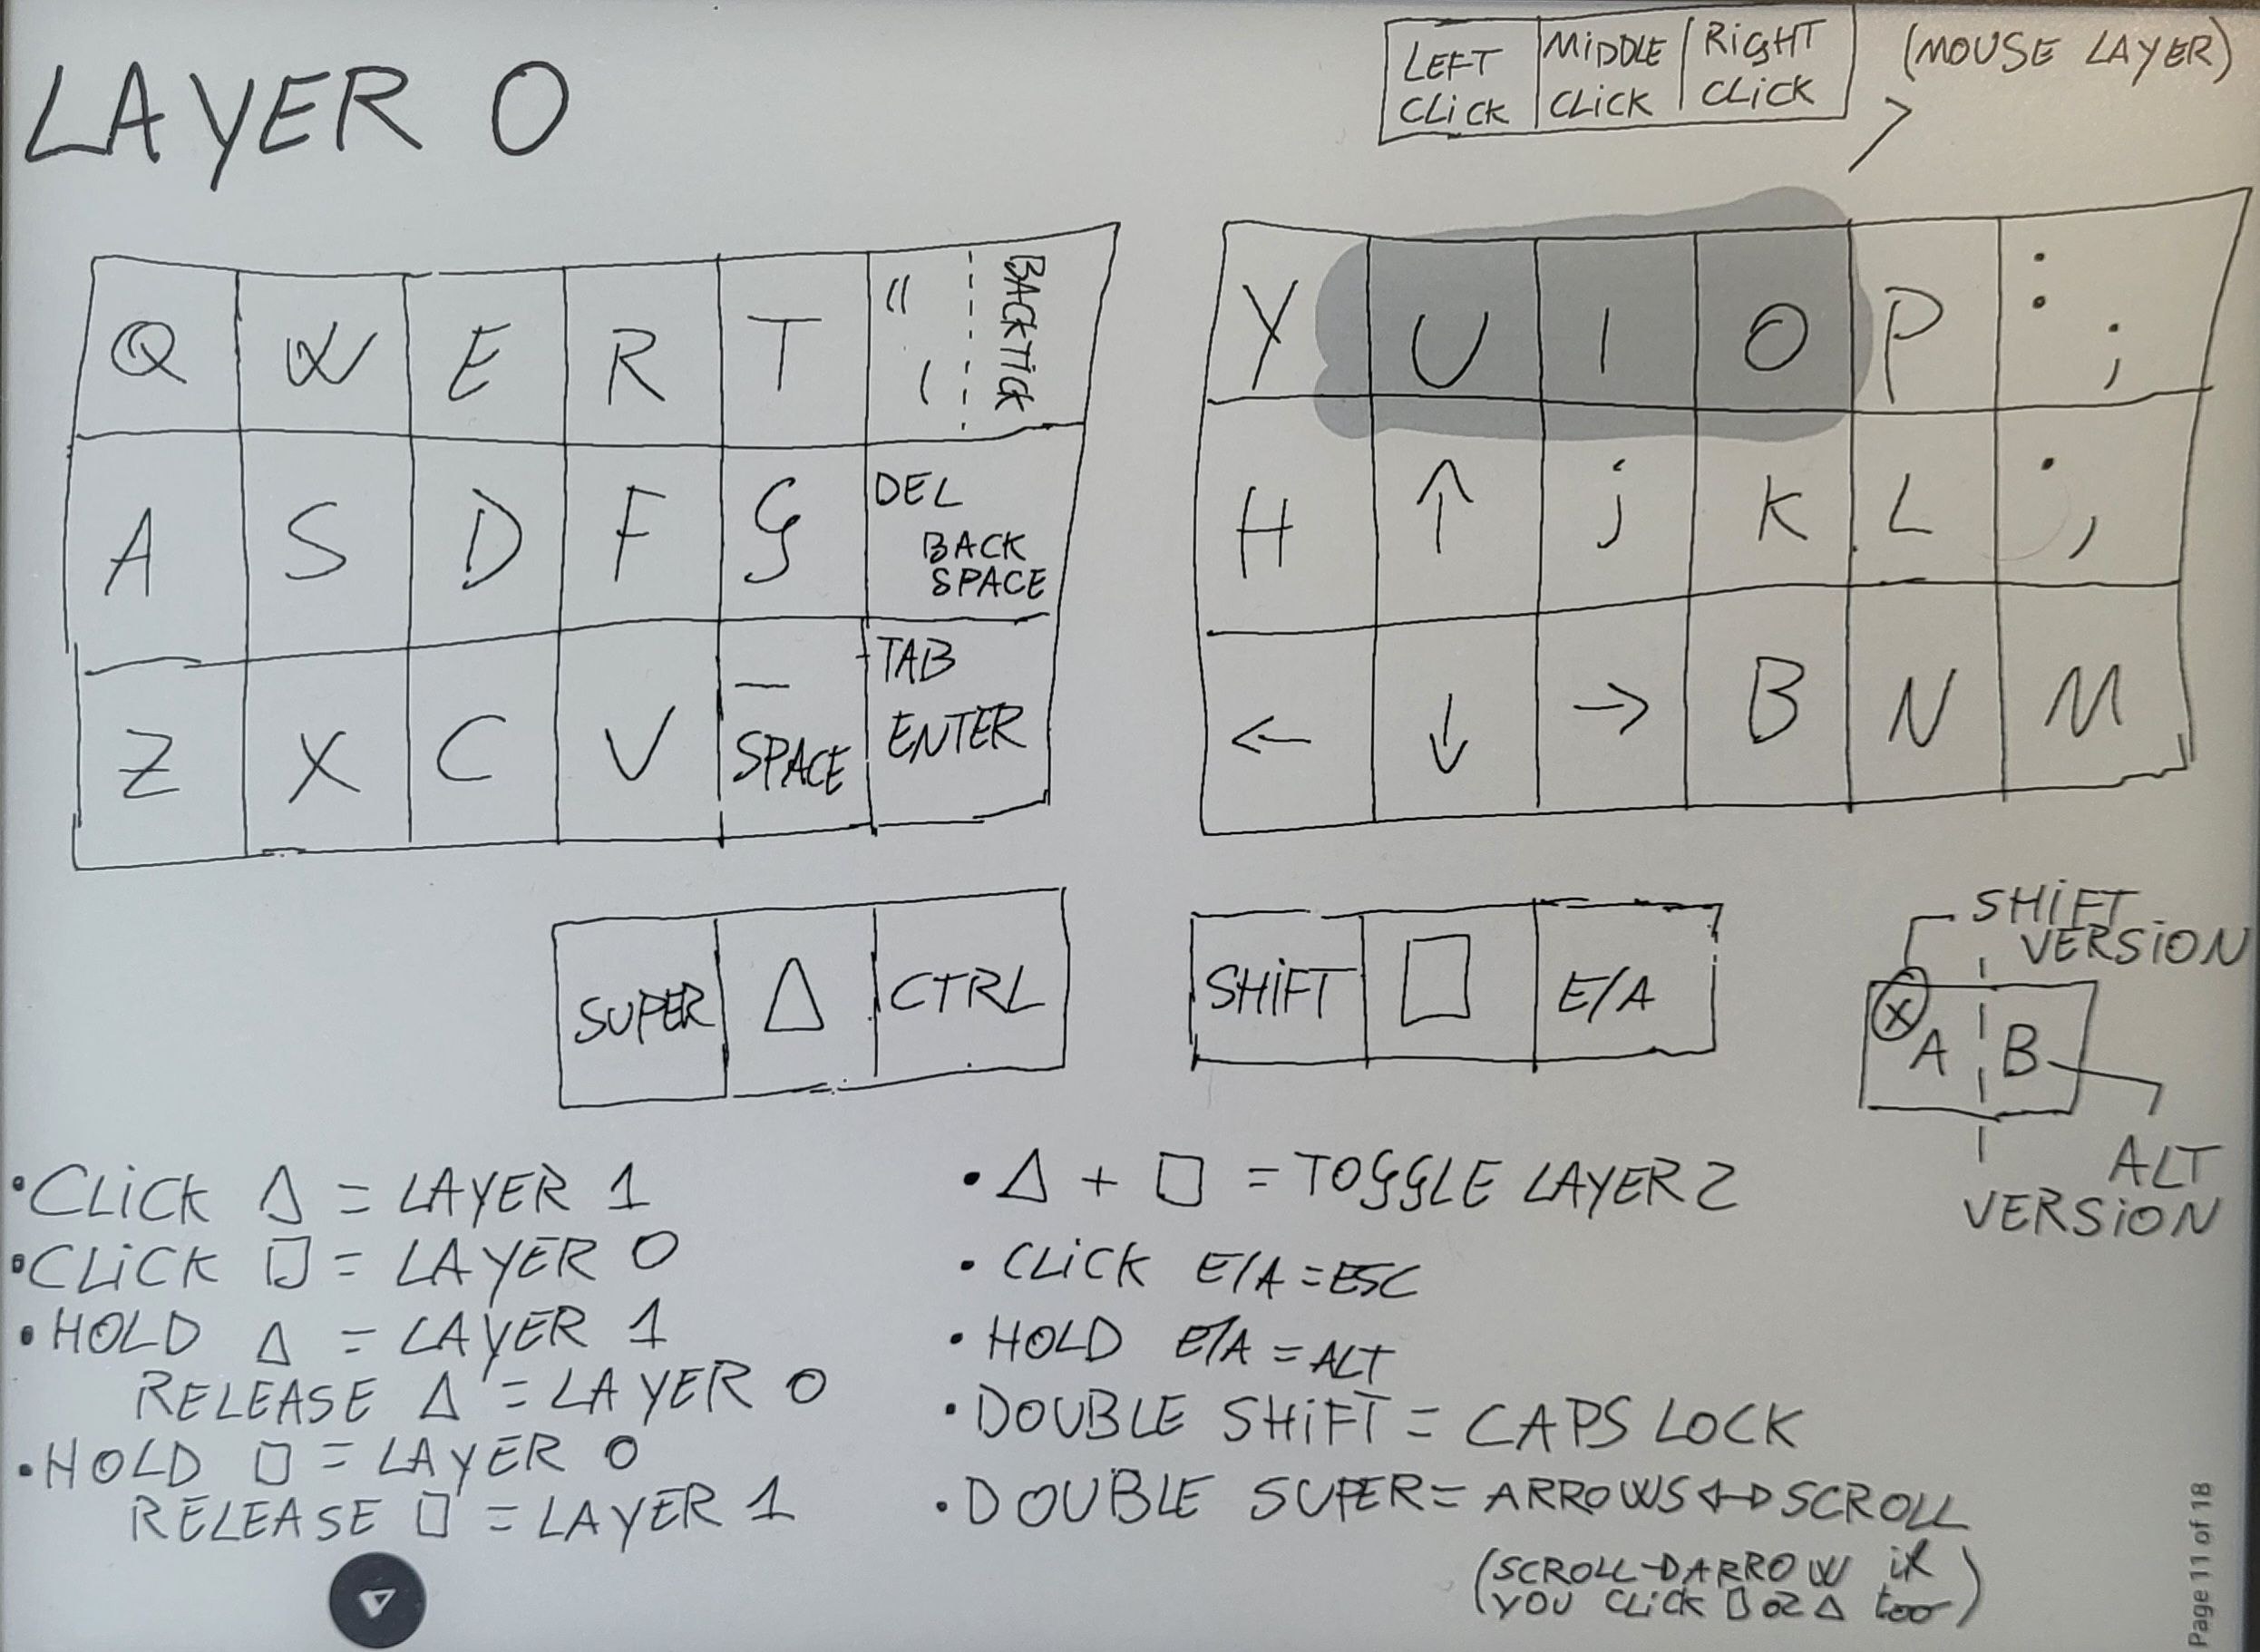 LAYER 0
LEFT CLICK
MIDDLE CLICK
RIGHT CLICK
(MOUSE LAYER)
Q W E R T " ' BACKTICK
Y U I O P : ;
A S D F G DEL BACK SPACE
H ↑ j K L . ,
Z X C V _ SPACE TAB ENTER
← ↓ → B N M
SUPER △ CTRL
SHIFT □ E/A
SHIFT VERSION
X A B
ALT VERSION
• CLICK △ = LAYER 1
• CLICK □ = LAYER 0
• HOLD △ = LAYER 1
RELEASE △ = LAYER 0
• HOLD □ = LAYER 0
RELEASE □ = LAYER 1
• △ + □ = TOGGLE LAYER 2
• CLICK E/A = ESC
• HOLD E/A = ALT
• DOUBLE SHIFT = CAPS LOCK
• DOUBLE SUPER = ARROWS ↔ SCROLL
(SCROLL → ARROW if
YOU CLICK □ OR △ too)
Page 11 of 18